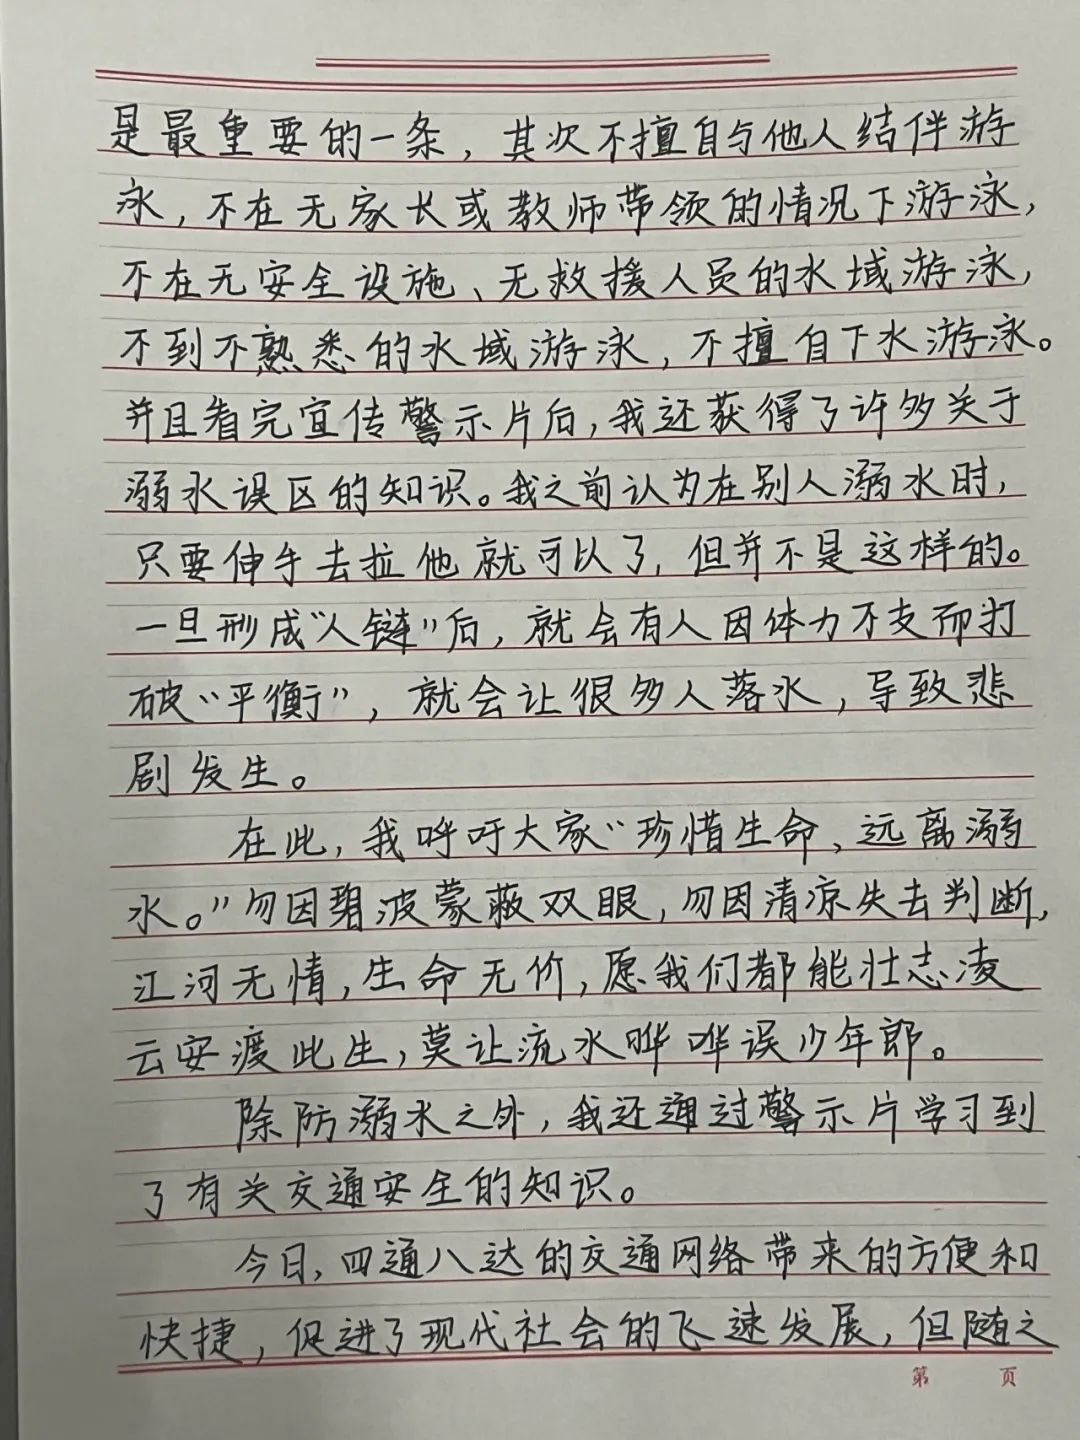 是最重要的一条，其次不擅自与他人结伴游
泳，不在无家长或教师带领的情况下游泳，
不在无安全设施、无救援人员的水域游泳，
不到不熟悉的水域游泳，不擅自下水游泳。
并且看完宣传警示片后，我还获得了许多关于
溺水误区的知识。我之前认为在别人溺水时，
只要伸手去拉他就可以了，但并不是这样的。
一旦形成“人链”后，就会有人因体力不支而打
破“平衡”，就会让很多人落水，导致悲
剧发生。
在此，我呼吁大家“珍惜生命、远离溺
水。”勿因碧波蒙蔽双眼，勿因清凉失去判断，
江河无情，生命无价，愿我们都能壮志凌
云安渡此生，莫让流水哗哗误少年郎。
除防溺水之外，我还通过警示片学习到
了有关交通安全的知识。
今日，四通八达的交通网络带来的方便和
快捷，促进了现代社会的飞速发展，但随之
第 页